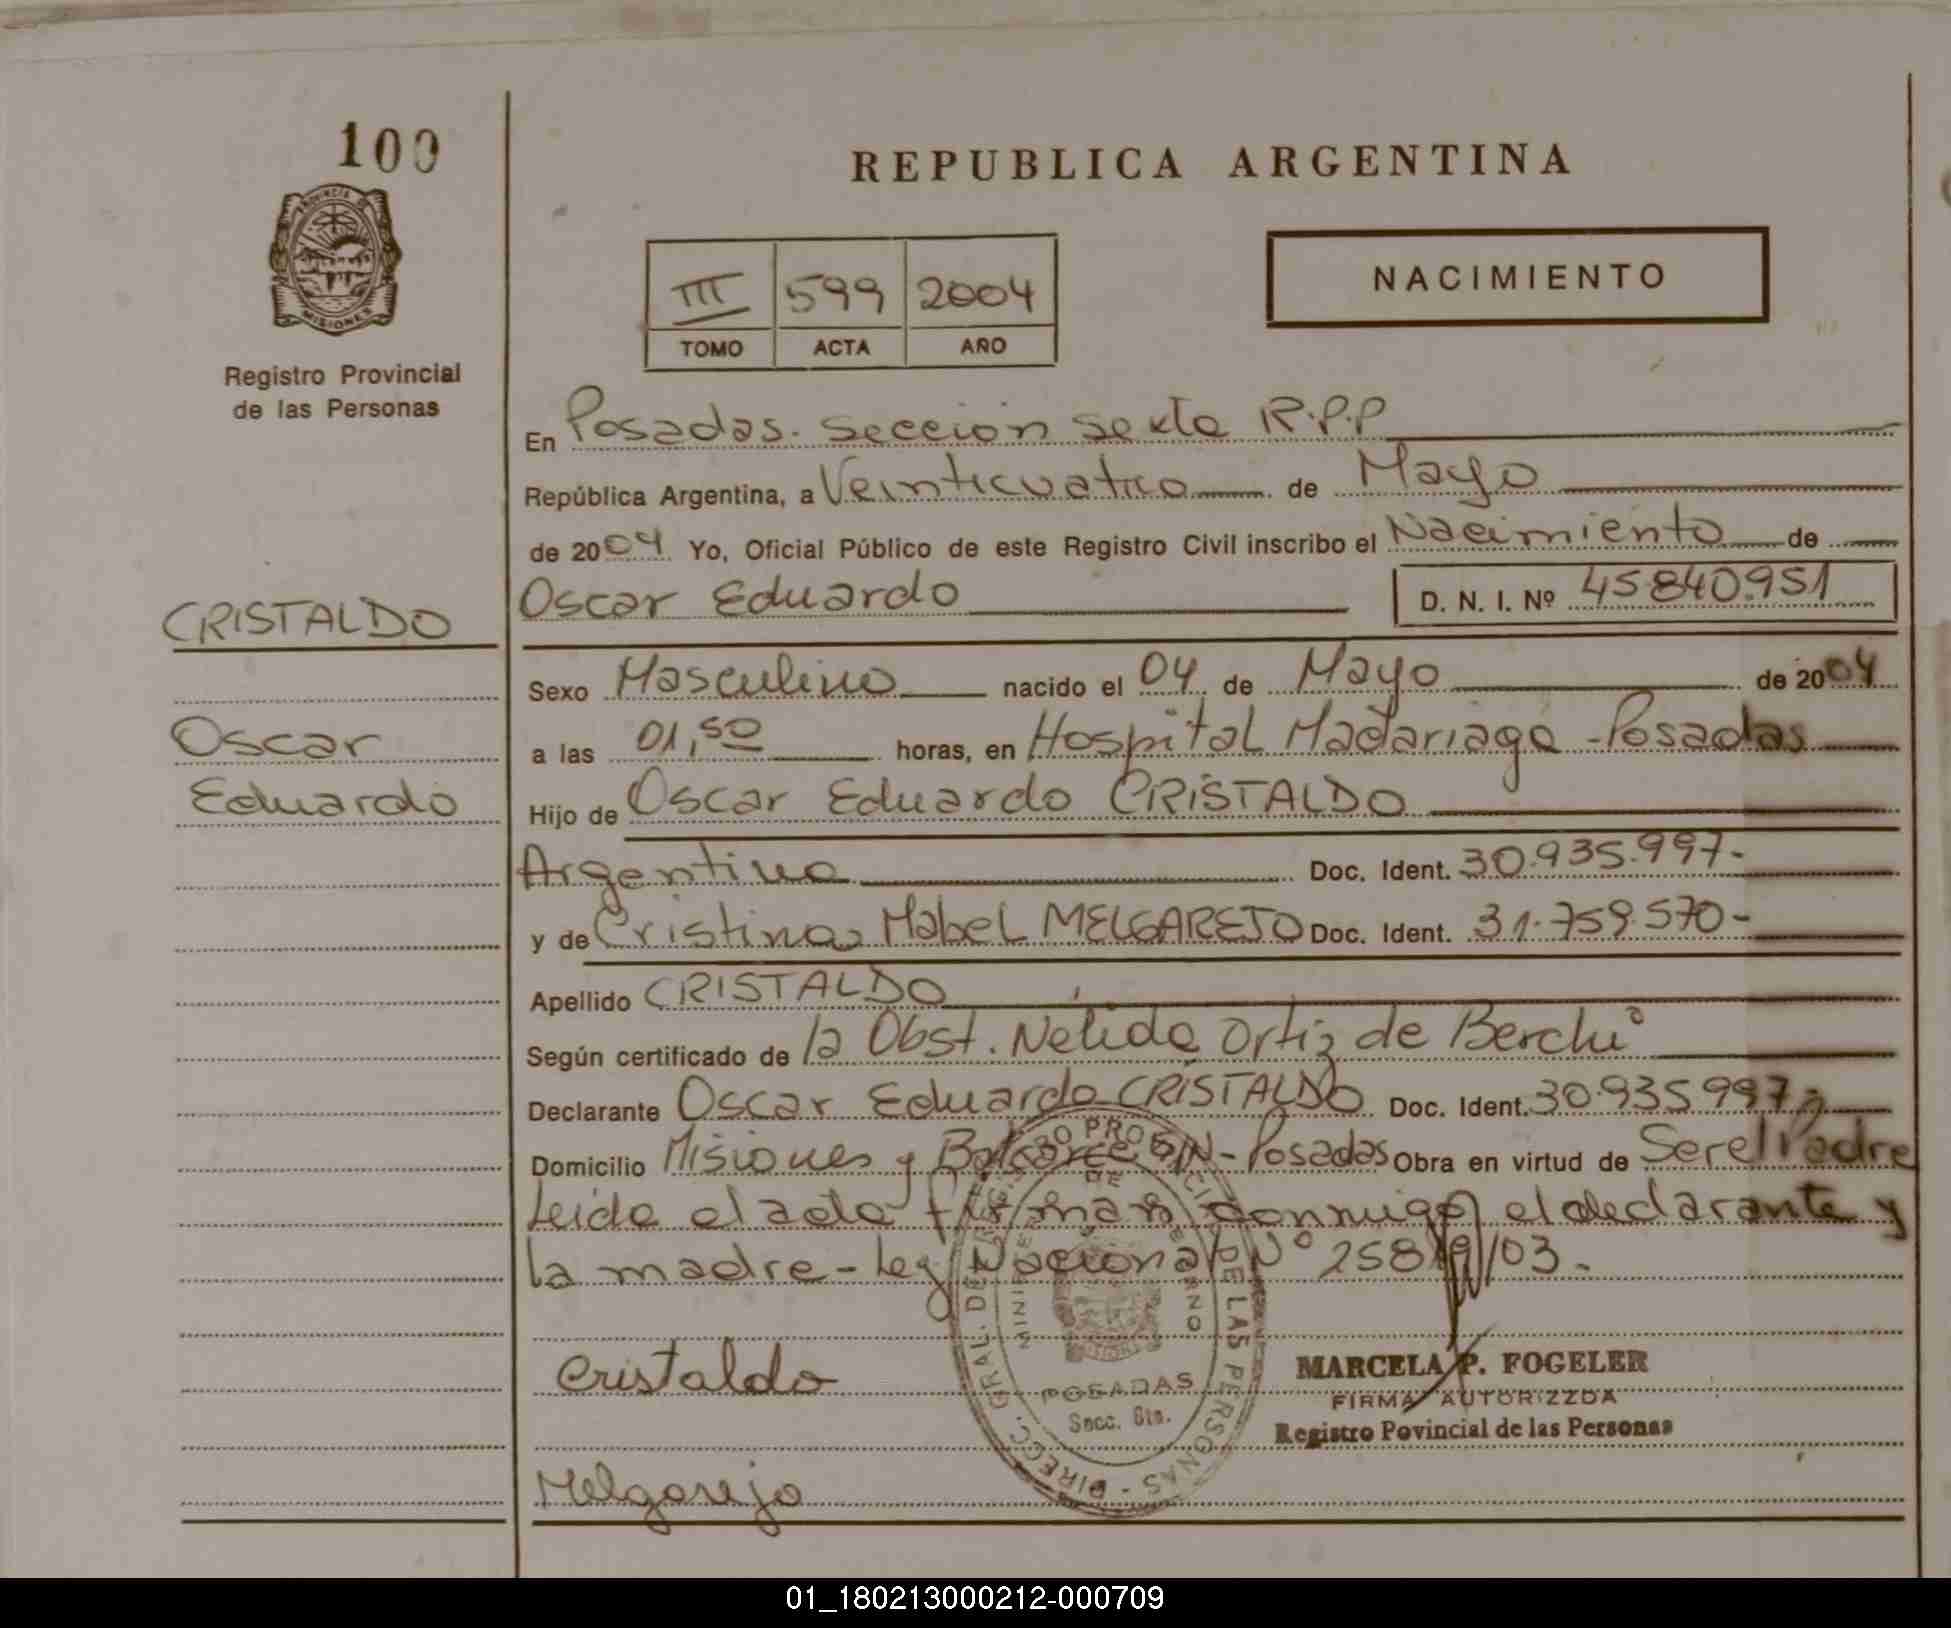 100
PROVINCIA DE
MISIONES
Registro Provincial
de las Personas
REPUBLICA ARGENTINA
III 599 2004
TOMO ACTA AÑO
NACIMIENTO
En Posadas. Sección Sexta R.P.P
República Argentina, a Veinticuatro de Mayo
de 2004 Yo, Oficial Público de este Registro Civil inscribo el Nacimiento de
CRISTALDO
Oscar Eduardo D. N. I. Nº 45840.951
Sexo Masculino nacido el 04 de Mayo de 2004
Oscar
a las 01,50 horas, en Hospital Madariaga - Posadas
Eduardo
Hijo de Oscar Eduardo CRISTALDO
Argentino Doc. Ident. 30.935.997-
y de Cristina Mabel MELGAREJO Doc. Ident. 31.759.570-
Apellido CRISTALDO
Según certificado de la Obst. Nelida Ortiz de Berchi
Declarante Oscar Eduardo CRISTALDO Doc. Ident. 30.935997-
Domicilio Misiones y Balcarce S/N - Posadas Obra en virtud de Ser el Padre
Leida el acta firman conmigo el declarante y
la madre - Ley Nacional Nº 25819/03.
DIRECC. GRAL. DE REGISTRO PROVINCIAL DE LAS PERSONAS
POSADAS
Secc. 6ta.
Cristaldo
MARCELA P. FOGELER
FIRMA AUTORIZZDA
Registro Povincial de las Personas
Melgarejo
01_180213000212-000709